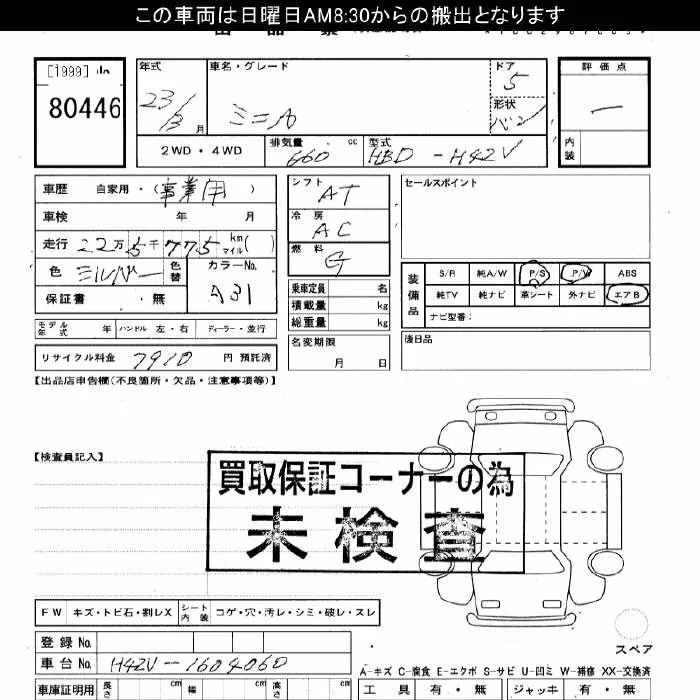 この車両は日曜日AM8:30からの搬出となります
[1999]
80446
年式 23/3 月
車名・グレード ミニカ
ドア 5
形状 バン
評価点 ー
内装
2WD・4WD
排気量 660 cc
型式 HBD-H42V
車歴 自家用・(事業用)
車検 年 月
走行 22万5千775 km マイル( )
色 シルバー 色替
カラーNo. A31
保証書 ・無
モデル年式 年 ハンドル 左・右 ディーラー・並行
リサイクル料金 7910 円 預託済
シフト AT
冷房 AC
燃料 G
乗車定員 名
積載量 kg
総重量 kg
名変期限
月 日
セールスポイント
装備品
S/R 純A/W P/S P/W ABS
純TV 純ナビ 革シート 外ナビ エアB
ナビ型番:
後日品
【出品店申告欄(不良箇所・欠品・注意事項等)】
【検査員記入】
買取保証コーナーの為
未検査
FW キズ・トビ石・割レX シート内装 コゲ・穴・汚レ・シミ・破レ・スレ
登録No.
車台No. H42V-1604060
スペア
A-キズ C-腐食 E-エクボ S-サビ U-凹ミ W-補修 XX-交換済
車庫証明用 長さ cm 幅 cm 高さ cm
工具 有・無 ジャッキ 有・無